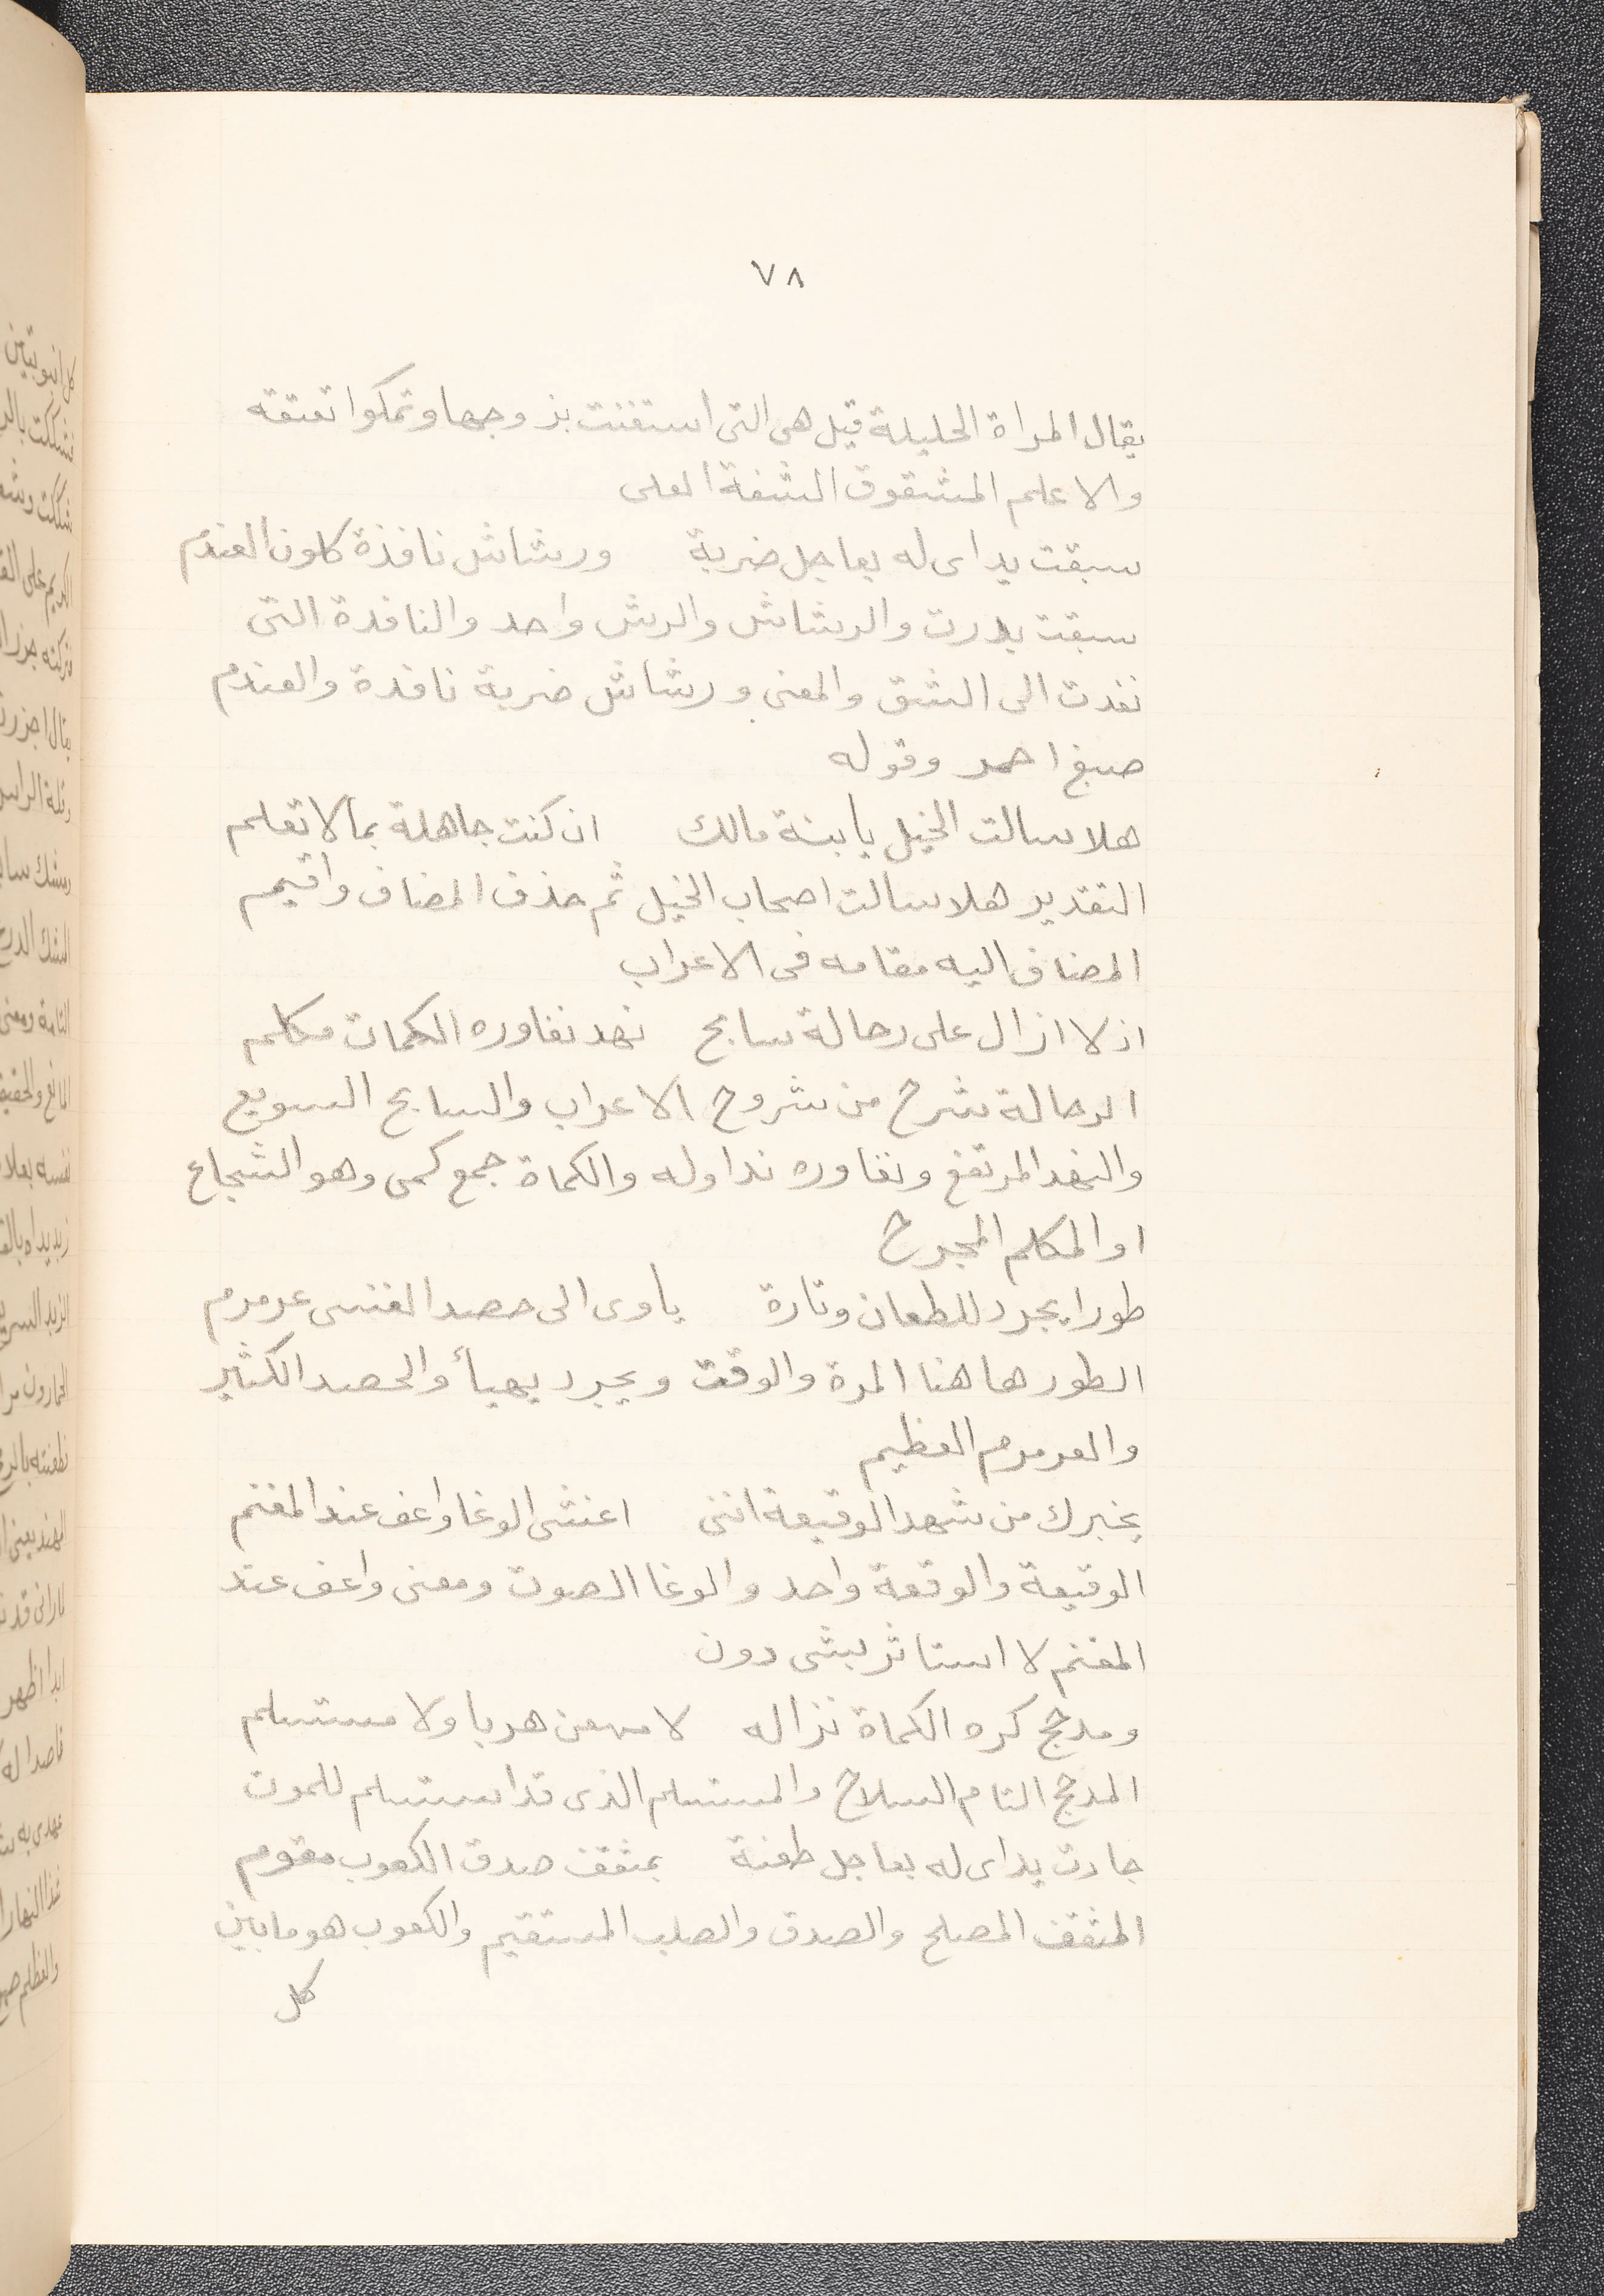 ٧٨
يقال المراة الحليلة قيل هى التى استغنت بزوجها وتمكوا تعتقه
والاعلم المشقوق الشفة العلى
سبقت يداى له بعاجل ضربة ورشاش نافذة كلون العندم
سبقت بدرت والرشاش والرش واحد والنافدة التى
نفدت الى الشق والمعنى ورشاش ضربة نافدة والعندم
صبغ احمر وقوله
هلا سالت الخيل يا بنة مالك ان كنت جاهلة بما لا تعلم
التقدير هلا سالت اصحاب الخيل ثم حذف المضاف واقيم
المضاف اليه مقامه فى الاعراب
اذ لا ازال على رحالة سابح نهد تغاوره الكمات مكلم
الرحالة شرح من شروح الاعراب والسابح السويع
والنهد المرتفع وتغاوره نداوله والكماة جمع كمى وهو الشجاع
او المكلم المجرح
طورا يجرد للطعان وتارة ياوى الى حصد القنسى عرمرم
الطور هاهنا المرة والوقت ويجرد يهيأ والحصد الكثير
والعرمرم العظيم
يخبرك من شهد الوقيعة اننى اغشى الوغا واعف عند المغنم
الوقيعة والوقعة واحد والوغا الصوت ومعنى واعف عند
المغنم لا استاثر بشى دون
ومدجج كره الكماة نزاله لا ممعن هربا ولا مستسلم
المدجج التام السلاح والمستسلم الذى قد استسلم للموت
جادت يداى له بعاجل طعنة بمثقف صدق الكعوب مقوم
المثقف المصلح والصدق والصلب المستقيم والكعوب هو ما بين
كل